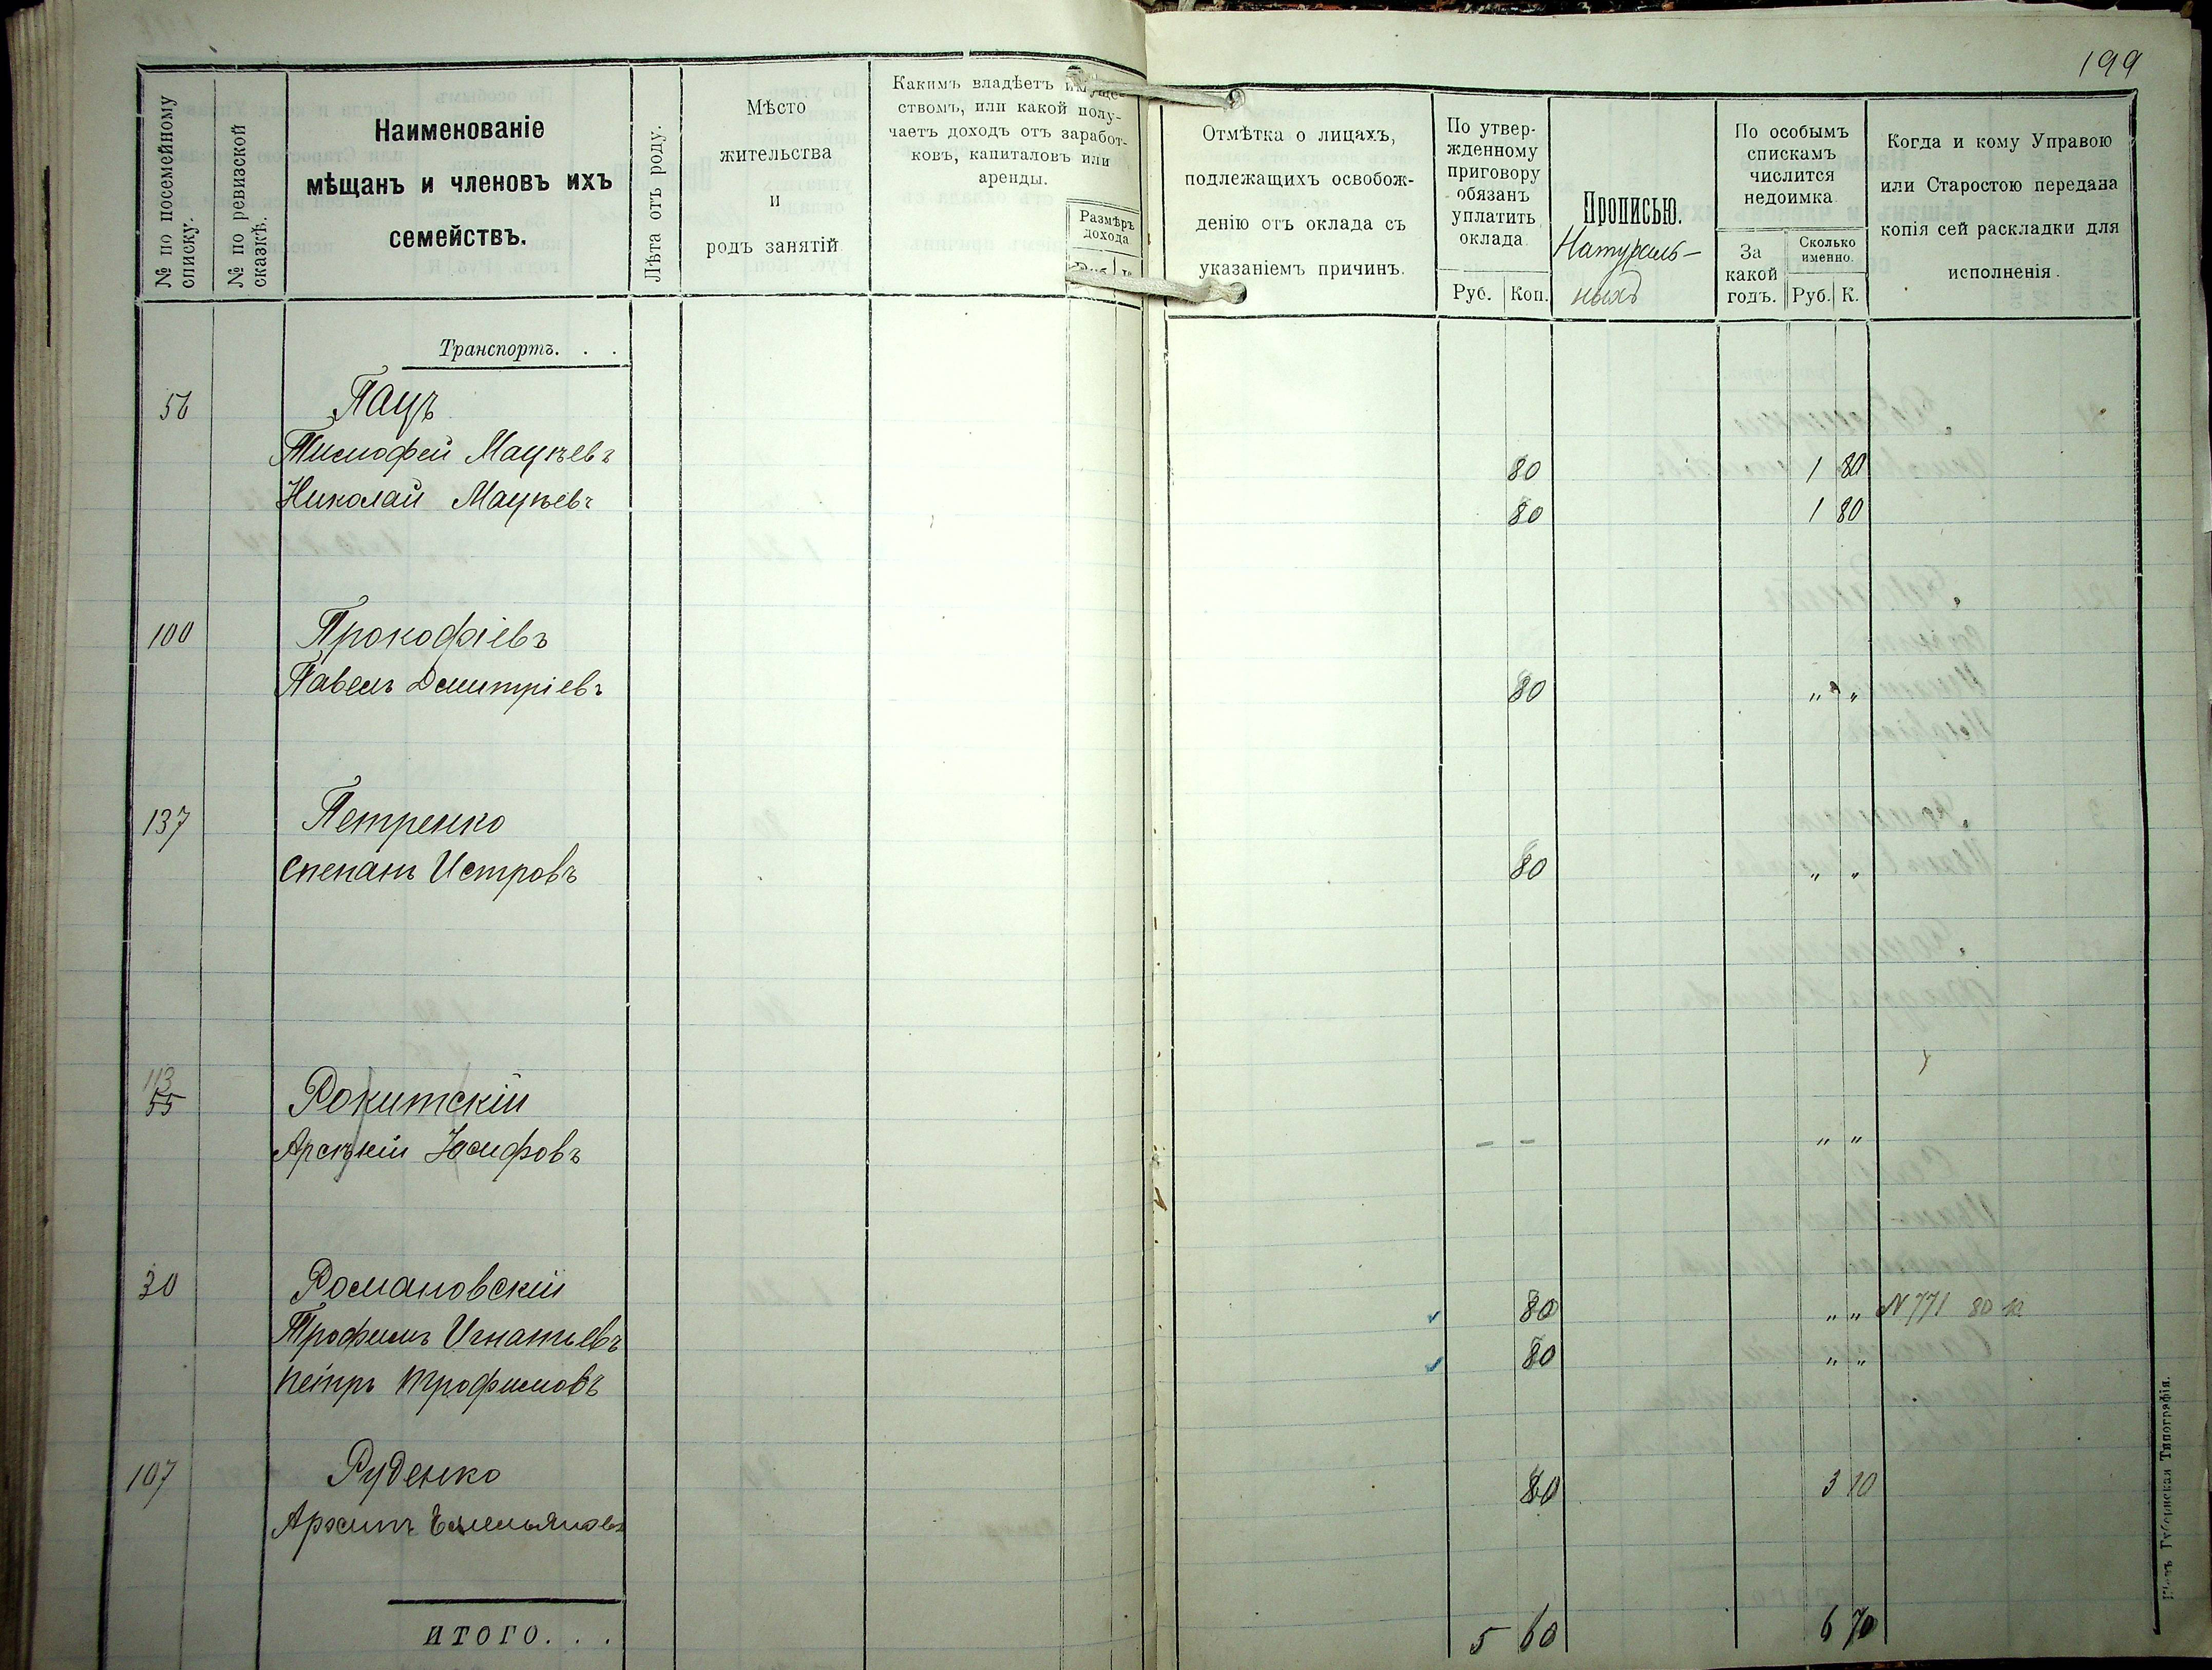 199
№ по посемейному списку.
№ по ревизской сказкѣ.
Наименованіе
мѣщанъ и членовъ ихъ
семействъ.
Лѣта отъ роду.
Мѣсто
жительства
и
родъ занятій
Какимъ владѣетъ имуще-
ствомъ, или какой полу-
чаетъ доходъ отъ заработ-
ковъ, капиталовъ или
аренды.
Размѣръ
дохода
Отмѣтка о лицахъ,
подлежащихъ освобож-
денію отъ оклада съ
указаніемъ причинъ.
По утвер-
жденному
приговору
обязанъ
уплатить
оклада
Руб. Коп.
Прописью.
Натураль-
ныхъ
По особымъ
спискамъ
числится
недоимка
За
какой
годъ.
Сколько
именно.
Руб. К.
Когда и кому Управою
или Старостою передана
копія сей раскладки для
исполненія.
Транспортъ. . .
56 Пацъ
Тимофей Мацѣевъ 80 1 80
Николай Мацѣевъ 80 1 80
100 Прокофіевъ
Павелъ Дмитріевъ 80 " "
137 Петренко
Степанъ Петровъ 80 " "
113
55 Рокитскій
Іосифовъ - - " "
30 Романовскій
Трофимъ Игнатьевъ 80 " " N 771 80 к
Петръ Трофимовъ 80 " "
107 Руденко 80 3 10
Архипъ Емельяновъ
ИТОГО. . . 5 60 6 70
Губернская Типографія.